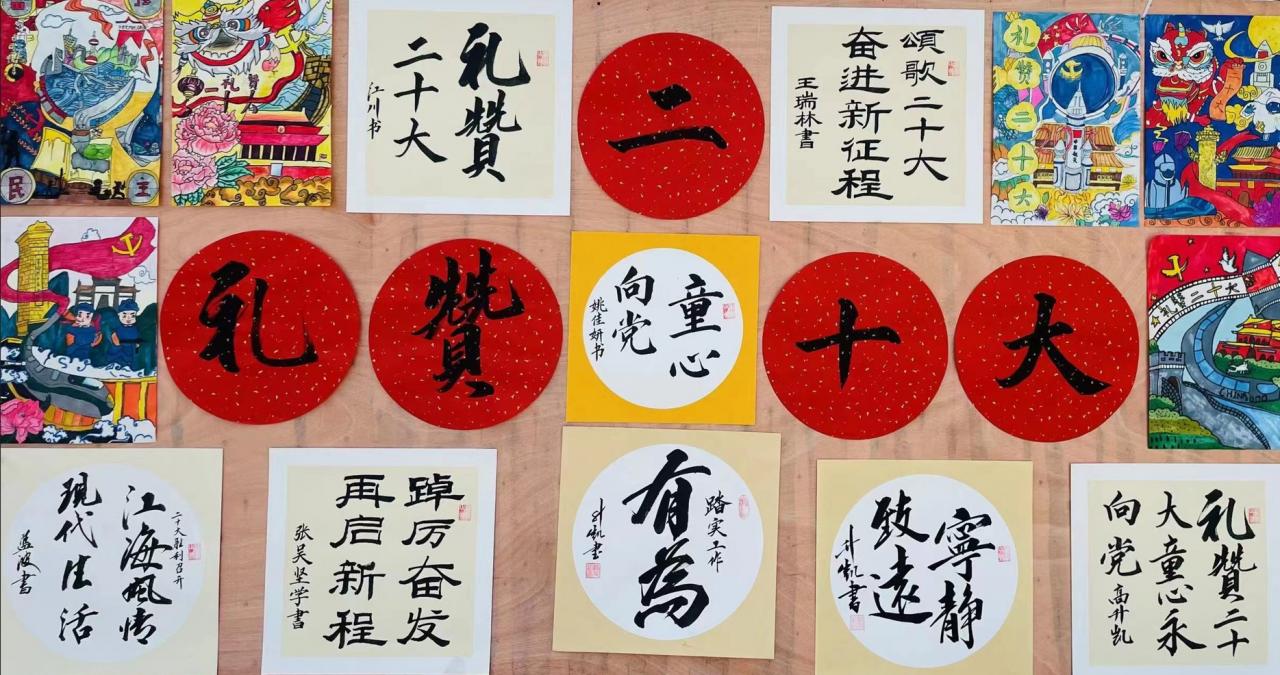 民
主
礼贊
二十大
江川书
二
頌歌二十大
奋进新征程
王瑞林書
礼赞二十大
礼
贊
童心
向党
姚佳妍书
十
大
礼赞二十大
二十大胜利召开
江海風情
現代生活
蓝波書
踔厉奋发
再启新程
张吴坚学書
踏实工作
有為
升凯書
寧静
致遠
升凯書
礼贊二十
大童心永
向党
高升凯